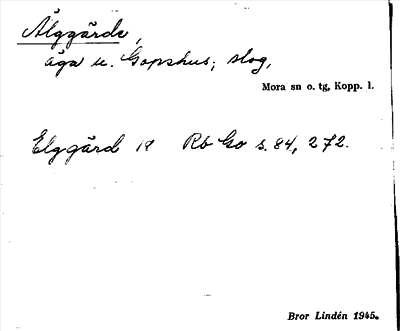 Älggårde,
äga u. Gopshus; slog,
Mora sn o. tg, Kopp. l.
Elggård 18 Rb Go s. 84, 272.
Bror Lindén 1945.